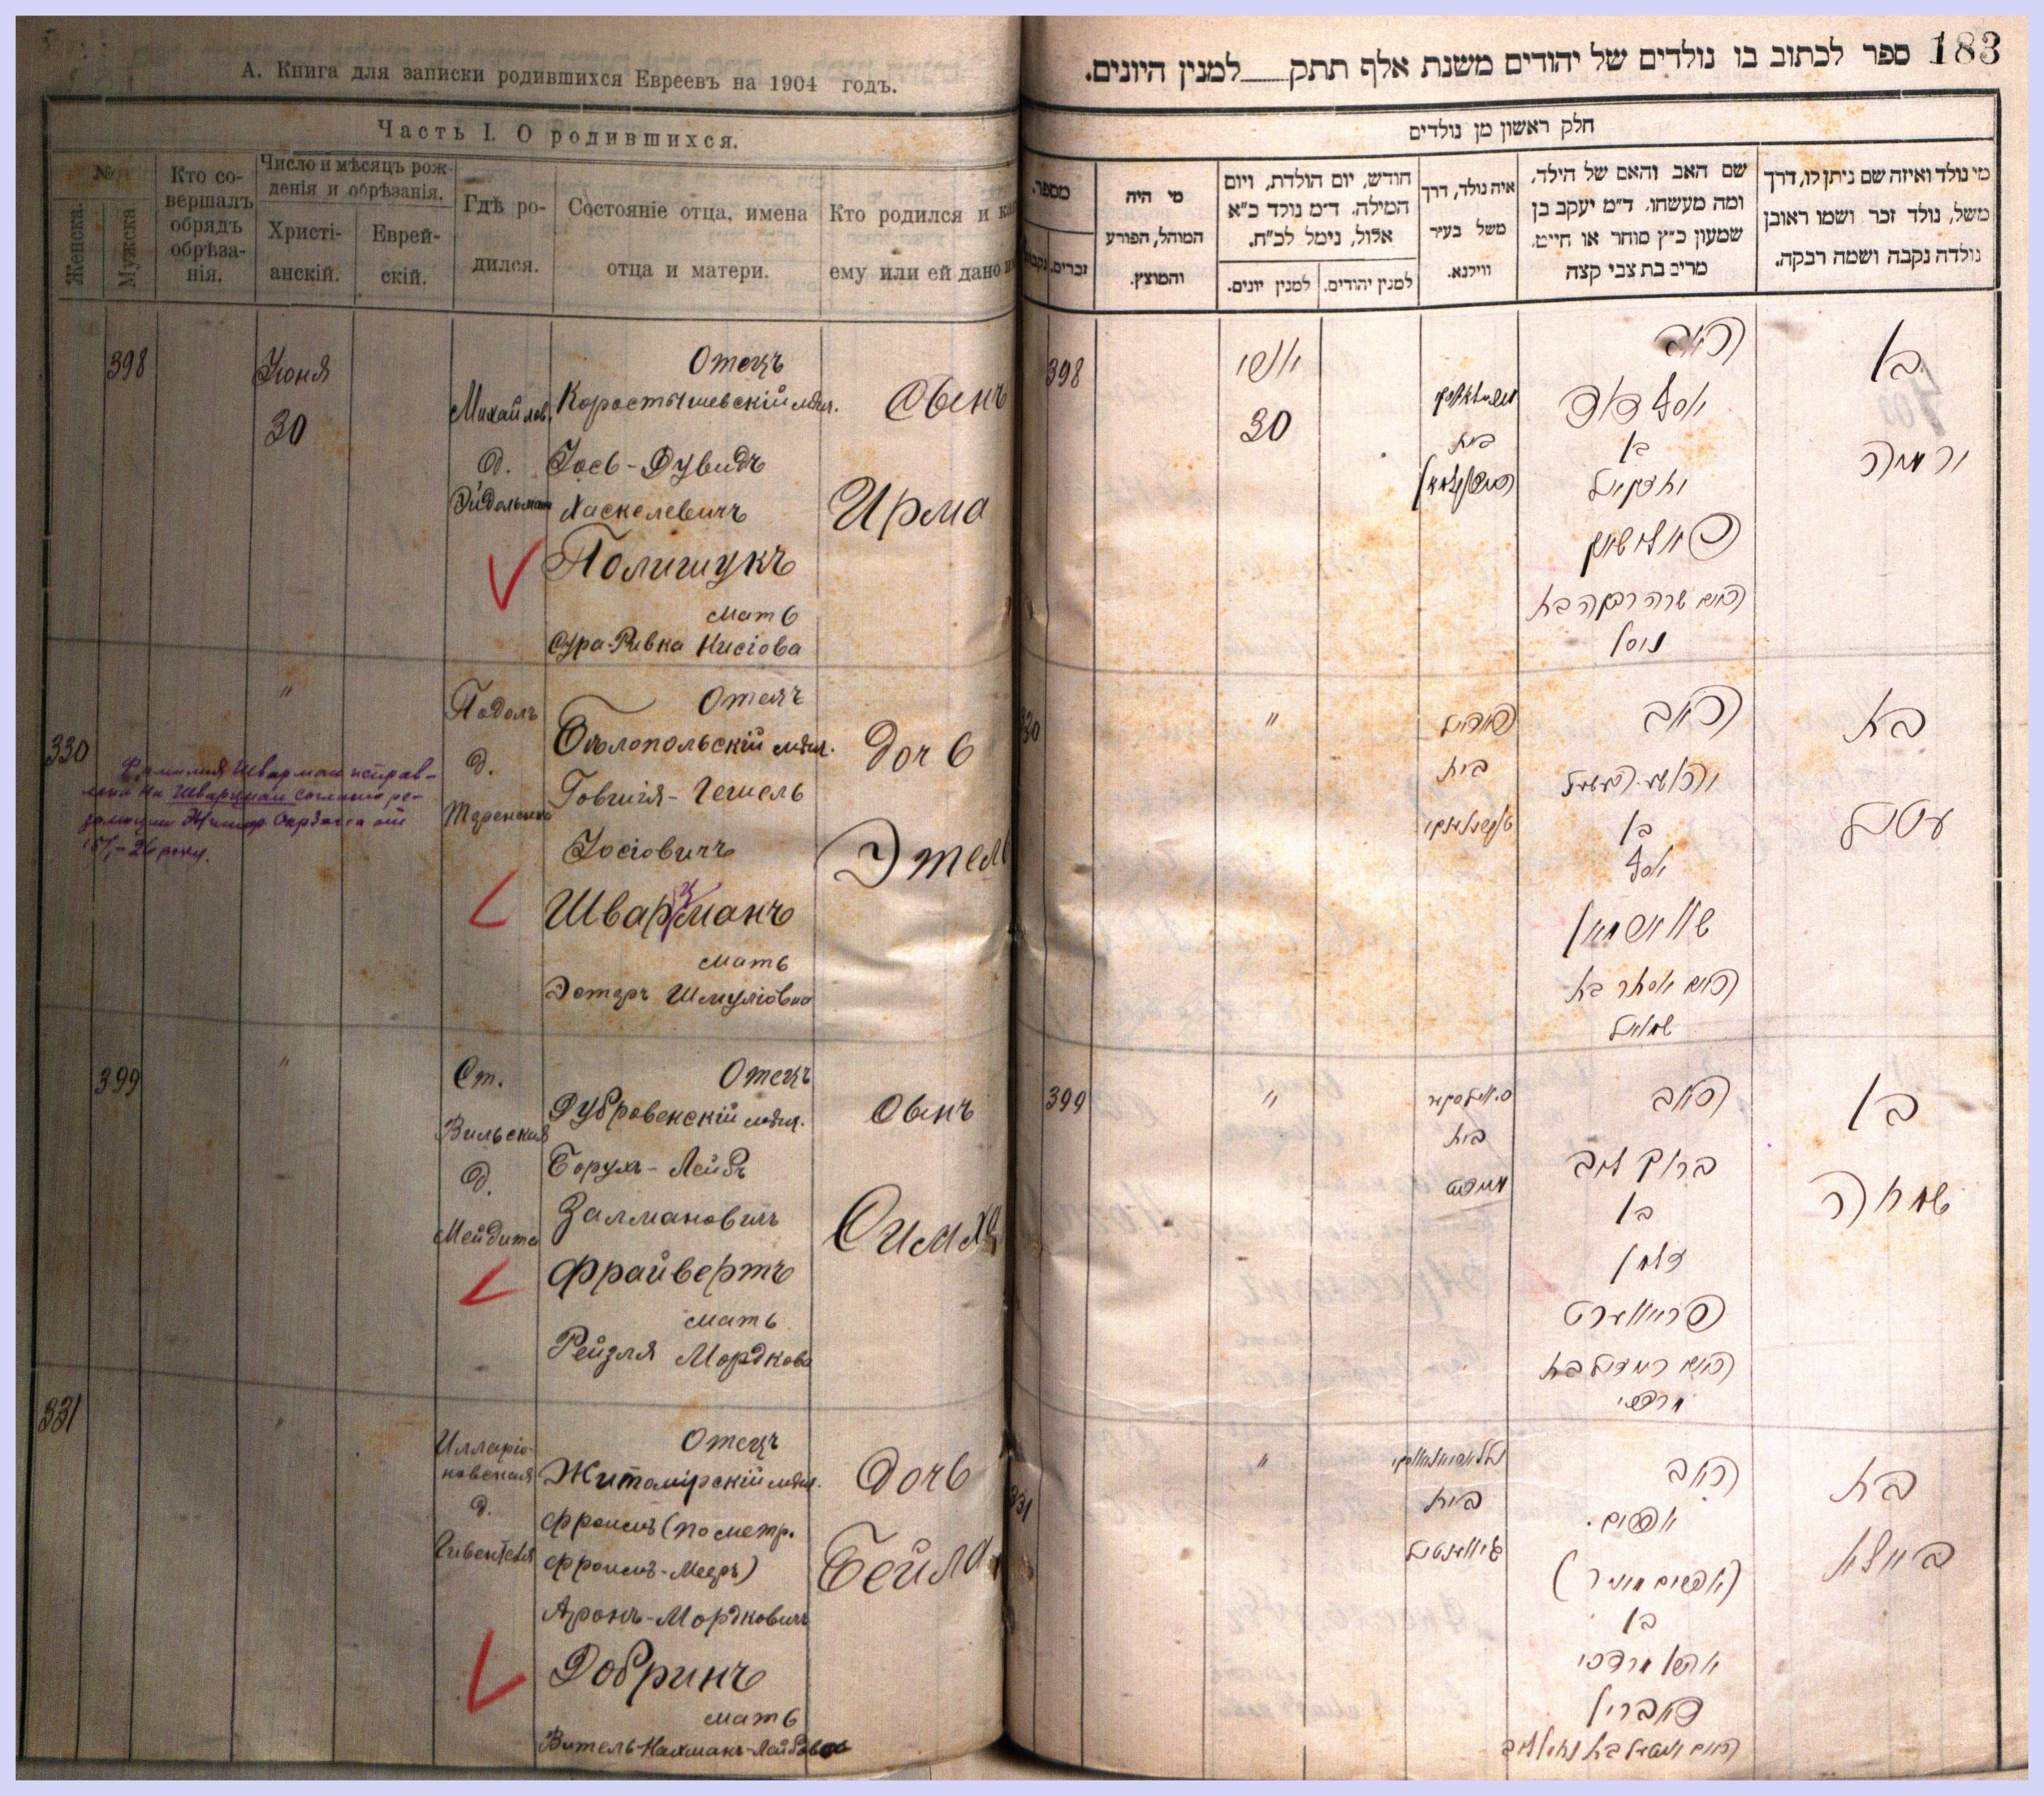 А. Книга для записки родившихся Евреевъ на 1904 годъ.
Часть I. О родившихся.
№
Женска.
Мужска
Кто со-
вершалъ
обрядъ
обрѣза-
нія.
Число и мѣсяцъ рож-
денія и обрѣзанія.
Христі-
анскій.
Еврей-
скій.
Гдѣ ро-
дился.
Состояніе отца, имена
отца и матери.
Кто родился и
ему или ей дано
398
Іюня
30
Михайлов.
д.
Эйдельман
Отецъ
Коростышевскій мѣщ.
Іось-Дувидъ
Хаскелевичъ
Полищукъ
мать
Сура-Ривка Нисіова
Сынъ
Ирма
330
"
Фамилия Шварман исправ-
лена на Шварцман согласно ре-
золюции
Подолъ
д.
Отецъ
Бѣлопольскій мѣщ.
Говшія-Гешель
Іосіовичъ
Шварцманъ
мать
Эстеръ Шмуліовна
Дочь
Этель
399
"
Ст.
Вильская
д.
Мейдита
Отецъ
Дубровенскій мѣщ.
Борухъ-Лейбъ
Залмановичъ
Фрайвертъ
мать
Рейзля Мордкова
Сынъ
Симха
331
"
Илларіо-
новская
д.
Отецъ
Житомірскій мѣщ.
Фроимъ (по метр.
Фроимъ-Мееръ)
Аронъ-Мордковичъ
Добринъ
мать
Витель Нахманъ-Лейбова
Дочь
Бейла
183
ספר לכתוב בו נולדים של יהודים משנת אלף תתק למנין היונים.
חלק ראשון מן נולדים
מי נולד ואיזה שם ניתן לו, דרך
משל, נולד זכר ושמו ראובן
נולדה נקבה ושמה רבקה.
שם האב והאם של הילד,
ומה מעשהו. ד״מ יעקב בן
שמעון כ״ץ סוחר או חייט,
מרים בת צבי קצה
איה נולד, דרך
משל בעיר
ווילנא.
חודש, יום הולדת, ויום
המילה. ד״מ נולד כ״א
אלול, נימל לכ״ח.
למנין יהודים.
למנין יונים.
מי היה
המוהל, הפורע
והמוצץ.
מספר.
זכרים.
בן
ירמיה
האב
יוסף דוד
בן
יחזקאל
פאלישוק
האם שרה רבקה בת
ניסל
בית
יוני
30
398
בת
עטיל
האב
יהושע העשיל
בן
יוסף
שווארצמאן
האם אסתר בת
שמואל
פודיל
בית
"
330
בן
שמחה
האב
ברוך ליב
בן
זלמן
פרייווערט
האם רייזיל בת
מרדכי
בית
מיידיט
"
399
בת
ביילא
האב
אפרים
(אפרים מאיר)
בן
אהרן מרדכי
דאברין
בית
"
331